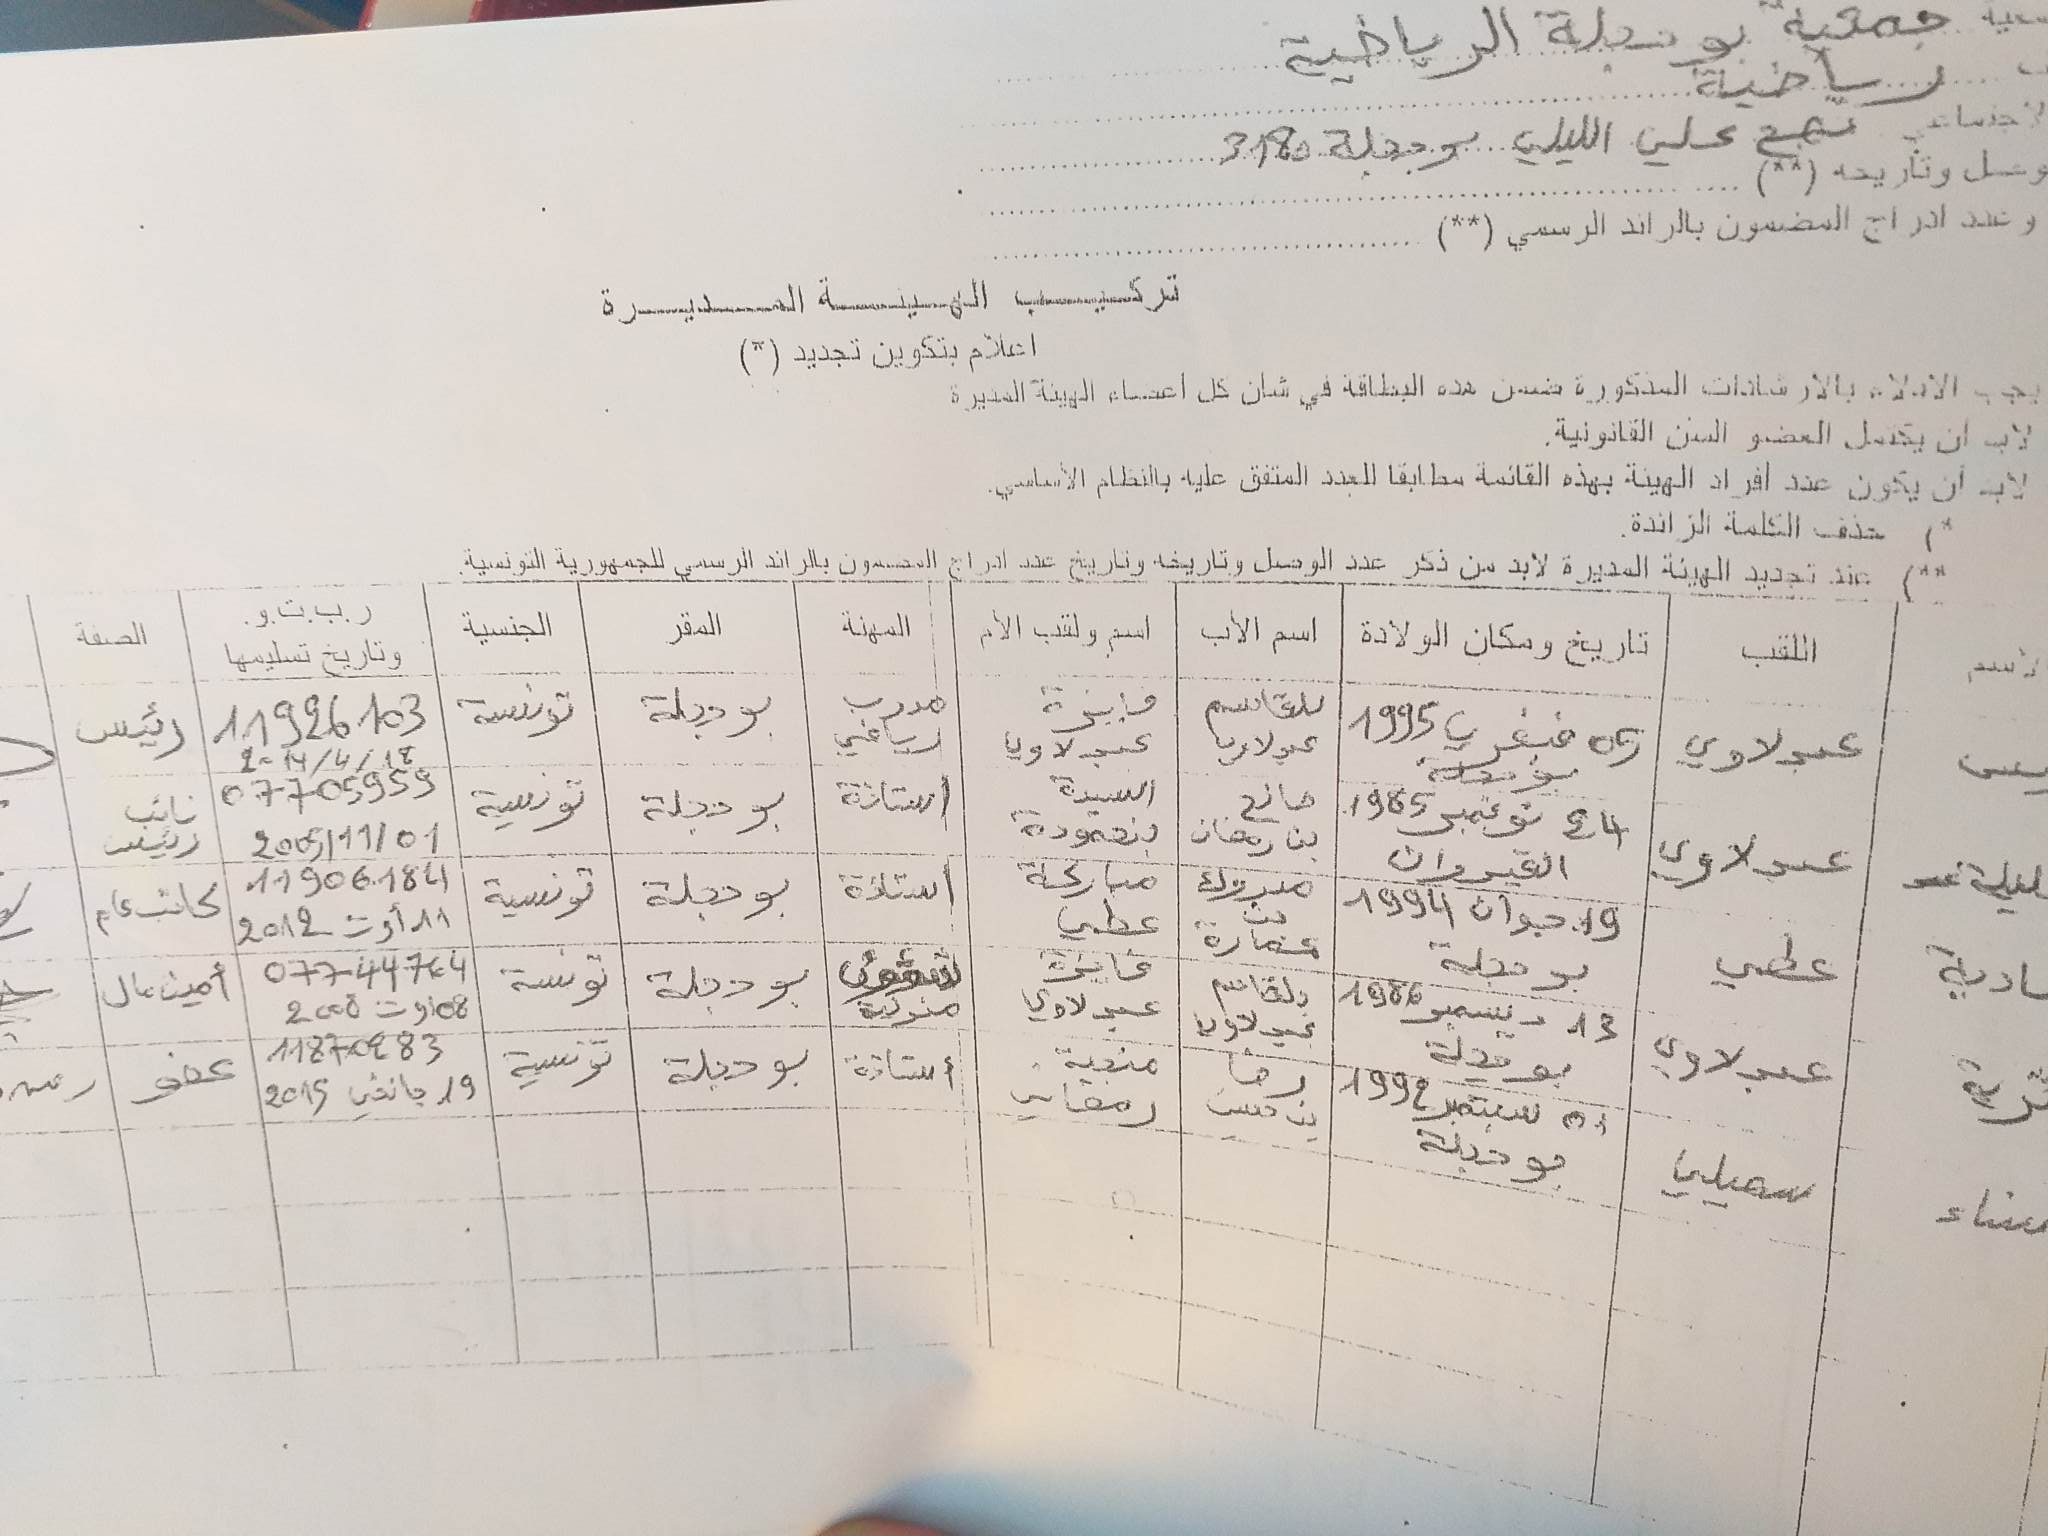 جمعية بوحجلة الرياضية
رياضية
نهج علي الليلي بوحجلة 3180
وتاريخه (**)
و عدد ادراج المضمون بالرائد الرسمي (**)
تركيب الهيئة المديرة
اعلام بتكوين تجديد (*)
يجب الادلاء بالارشادات المذكورة ضمن هذه البطاقة في شأن كل اعضاء الهيئة المديرة
لابد ان يكتمل العضو السن القانونية.
لابد أن يكون عدد أفراد الهيئة بهذه القائمة مطابقا للعدد المتفق عليه بالنظام الأساسي.
*) حذف الكلمة الزائدة.
**) عند تجديد الهيئة المديرة لابد من ذكر عدد الوصل وتاريخه وتاريخ عدد ادراج المضمون بالرائد الرسمي للجمهورية التونسية.
اللقب تاريخ ومكان الولادة اسم الأب اسم ولقب الأم المهنة المقر الجنسية ر.ب.ت.و. وتاريخ تسليمها الصفة
عبدلاوي 05 فيفري 1995 بوحجلة بلقاسم عبدلاوي فايزة عبدلاوي مدرب رياضي بوحجلة تونسية 11926103 2014/4/18 رئيس
عبدلاوي 24 نوفمبر 1985 القيروان صالح بن رمضان السيدة بنحمودة أستاذة بوحجلة تونسية 07705959 2005/11/01 نائب رئيس
عطي 19 جوان 1994 بوحجلة مبروك بن عمارة مباركة عطي أستاذة بوحجلة تونسية 11906184 11 أوت 2012 كاتب عام
عبدلاوي 13 ديسمبر 1986 بوحجلة بلقاسم عبدلاوي فايزة عبدلاوي منزلية بوحجلة تونسية 07744764 08 أوت 2008 أمين مال
سهيلي 01 سبتمبر 1992 بوحجلة رضا منجية رمضاني أستاذة بوحجلة تونسية 11870283 19 جانفي 2015 عضو